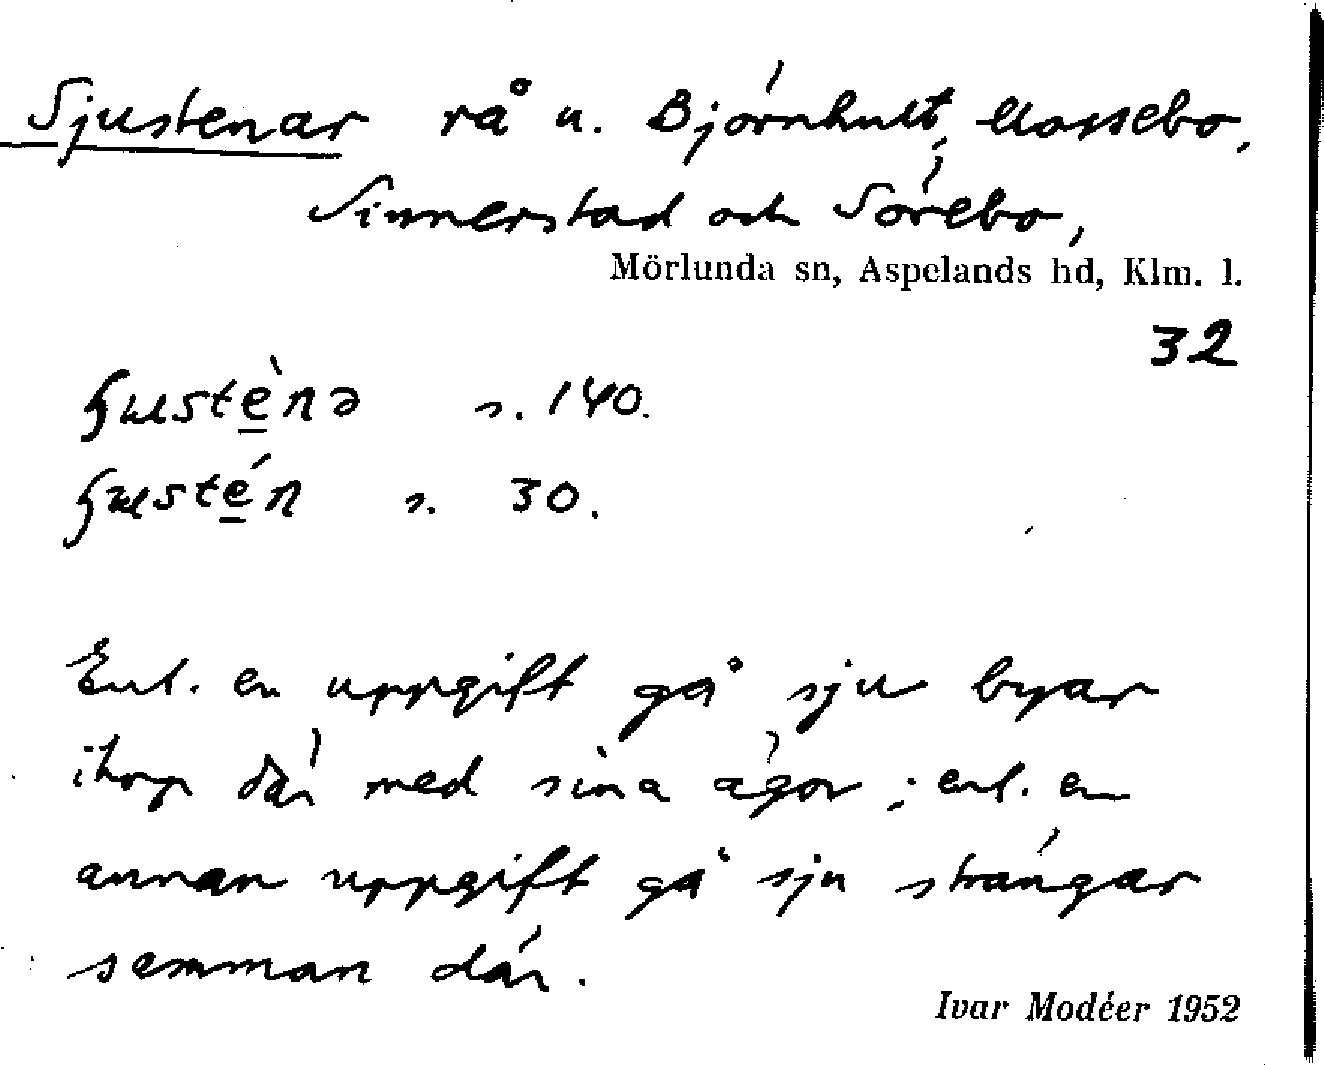 Sjustenar rå u. Björnhult, Mossebo,
Sinnerstad och Sörebo,
Mörlunda sn, Aspelands hd, Klm. l.
32
s. 140.
s. 30.
Enl. en uppgift gå sju byar
ihop där med sina ägor; enl. en
annan uppgift gå sju strängar
samman där.
Ivar Modéer 1952